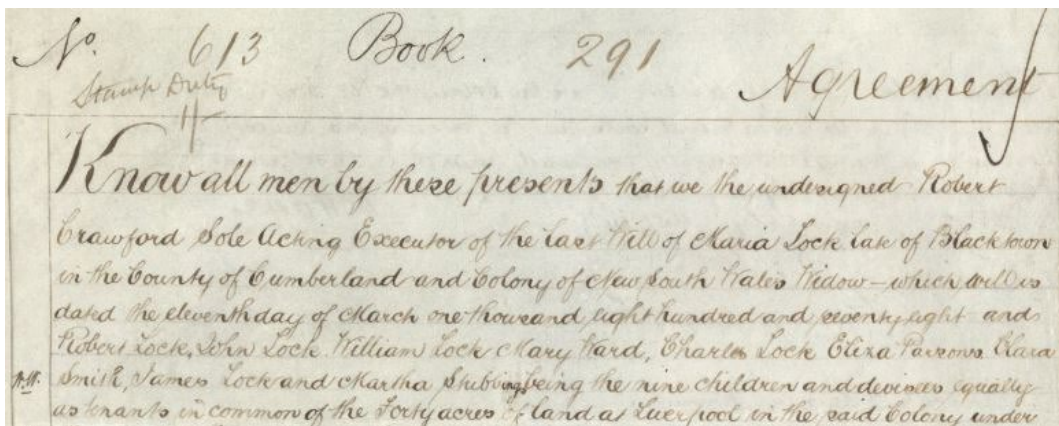 No. 613 Book. 291
Stamp Duty Agreement
1/-
Know all men by these presents that we the undesigned Robert
Crawford Sole Acting Executor of the last Will of Maria Lock late of Blacktown
in the County of Cumberland and Colony of New South Wales Widow – which will is
dated the eleventh day of March one thousand eight hundred and seventy eight and
Robert Lock, John Lock William Lock Mary Ward, Charles Lock Eliza Parsons Clara
Smith, James Lock and Martha Stubbings being the nine children and devisees equally
as tenants in common of the Forty acres of land at Liverpool in the said Colony under